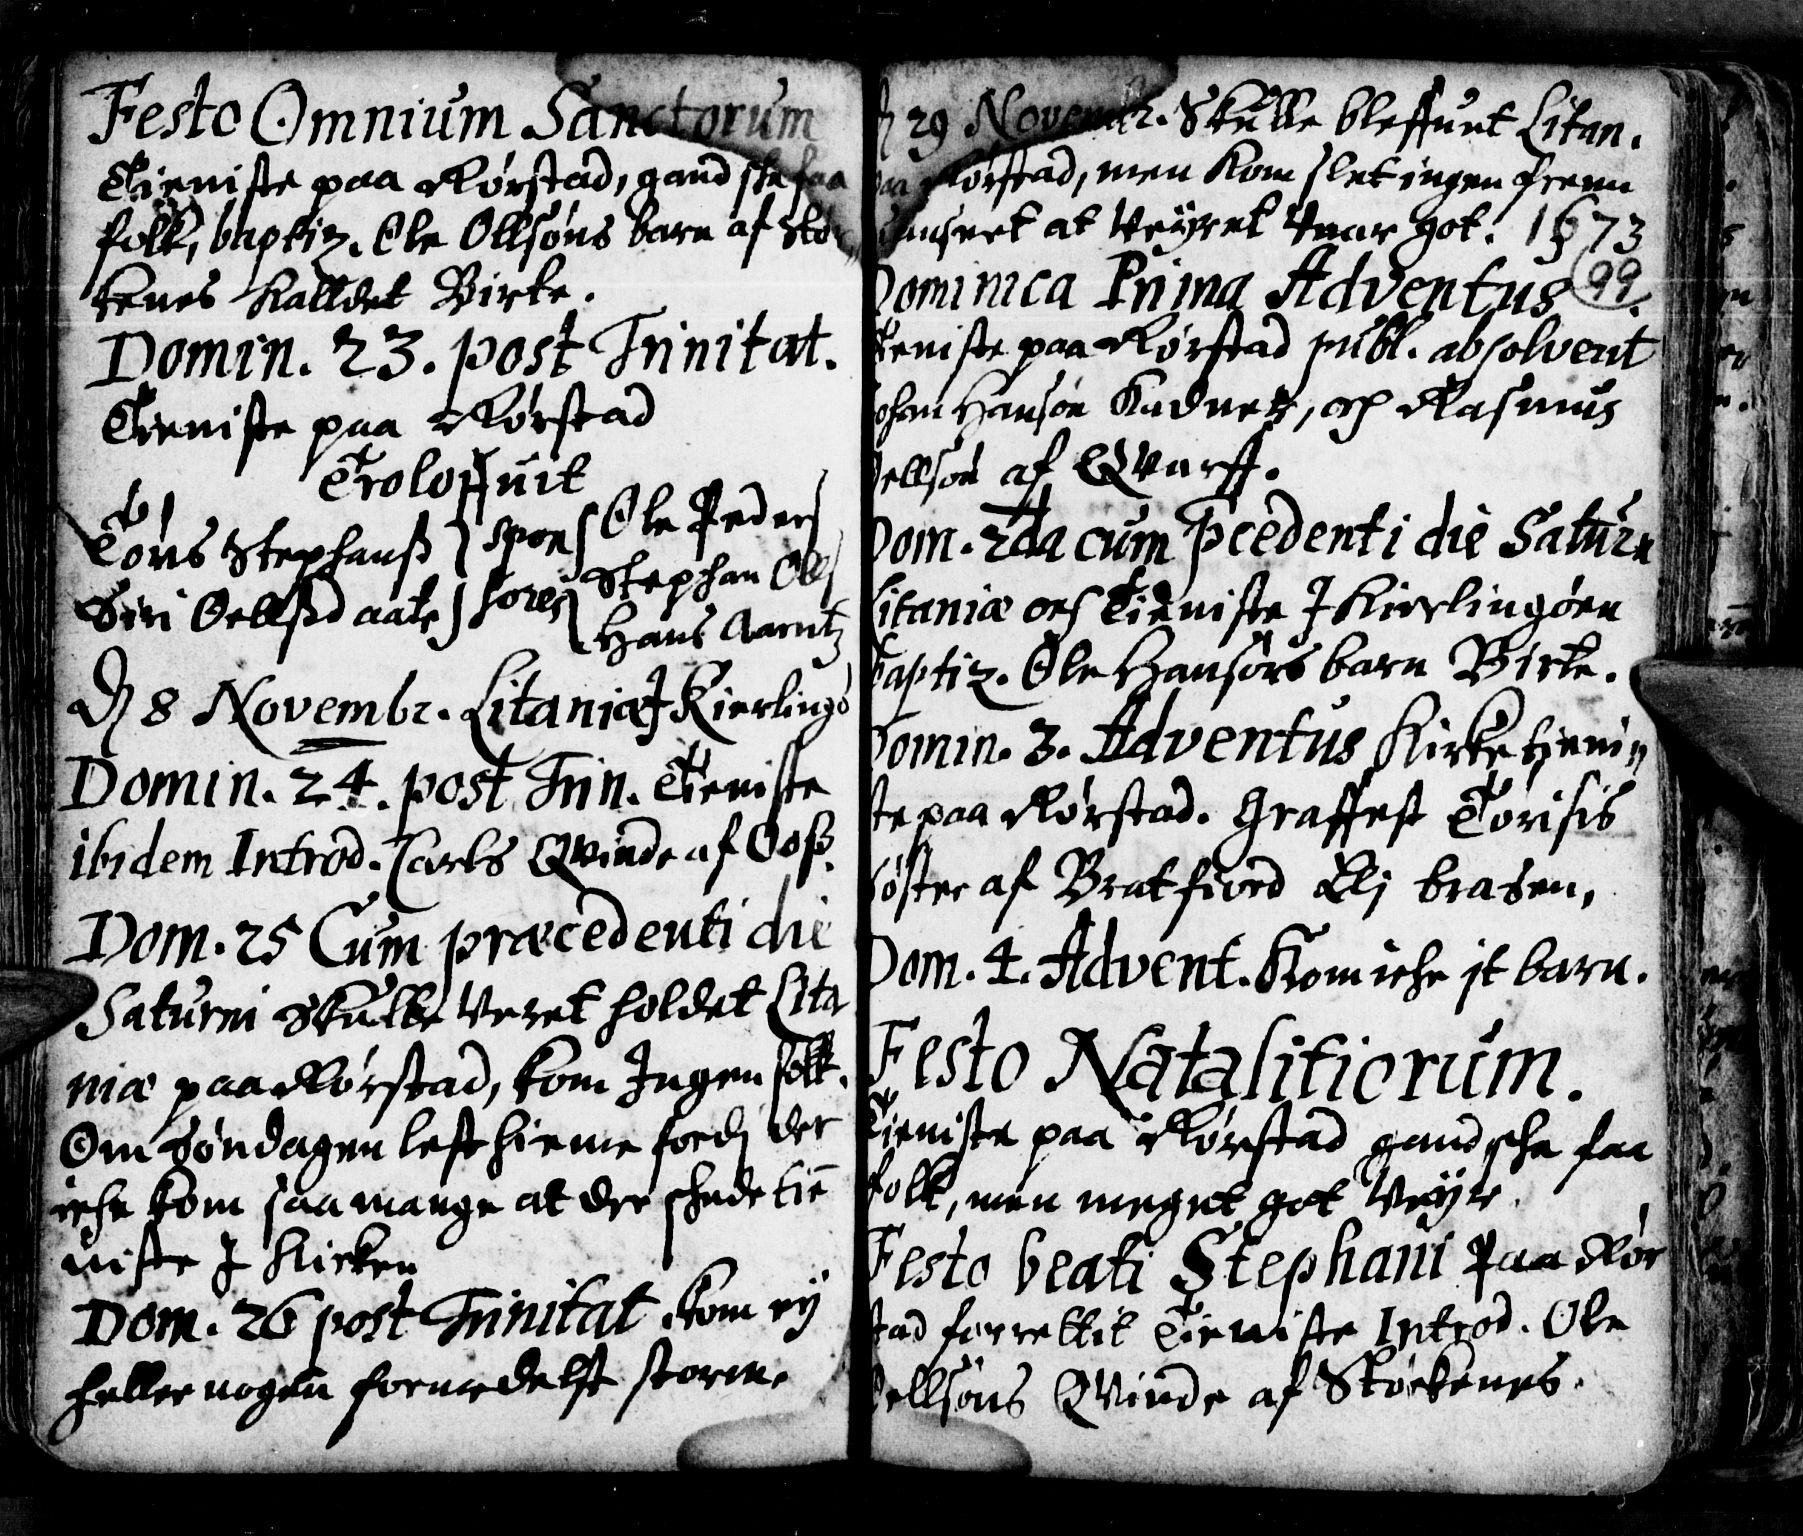 Festo Omnium Sanctorum
Tieniste paa Rørstad, gandske faa
folk, baptiz. Ole Ollsøns barn af Stør
kenes Kalldet Birte.
Domin. 23. post Trinitat.
Tieniste paa Rørstad
Troloffuit
Tøris Stephanß } spon{ Ole Peders
Siri Oellßdaate } sores Stephan Olls
Hans Aarntz
D 8 Novembr. Litania J Kierlingø
Domin. 24. post Trin. Tieniste
ibidem Introd. Carls Qvinde af Ooß.
Dom. 25 Cum præcedenti die
Saturni Skulle Veret holdet Lita
niæ paa Rørstad, kom Ingen folk.
Om Søndagen lest hieme fordj der
iche kom saa mange at der schede tie
niste J Kirken
Dom. 26 post Trinitat. kom ey
heller nogen formedelst storm.
29 Novembr. Skulle bleffuet Litan.
paa Rørstad, men kom slet ingen frem
uanseet at Veyret Vaar got. 1673
99
Dominica Prima Adventus.
Tieniste paa Rørstad publ. absolvent
Johan Hansøn, och Rasmus
Oellsøn af Qvarff.
Dom. 2da cum pcedenti die Saturn
Litaniæ oc Tieniste J Kierlingøen
baptiz. Ole Hansøns barn Birte.
Domin. 3. Adventus Kirketienin
ste paa Rørstad. Graffest Tørisis
Søster af Bratfiord Elj
Dom. 4. Advent. Kom iche it barn.
Festo Natalitiorum.
Tieniste paa Rørstad gandsche faa
folk, men meget got Veyr.
Festo beati Stephani Paa Rør
stad forrettit Tieniste Introd. Ole
Oellsøns Qvinde af Størkenes.